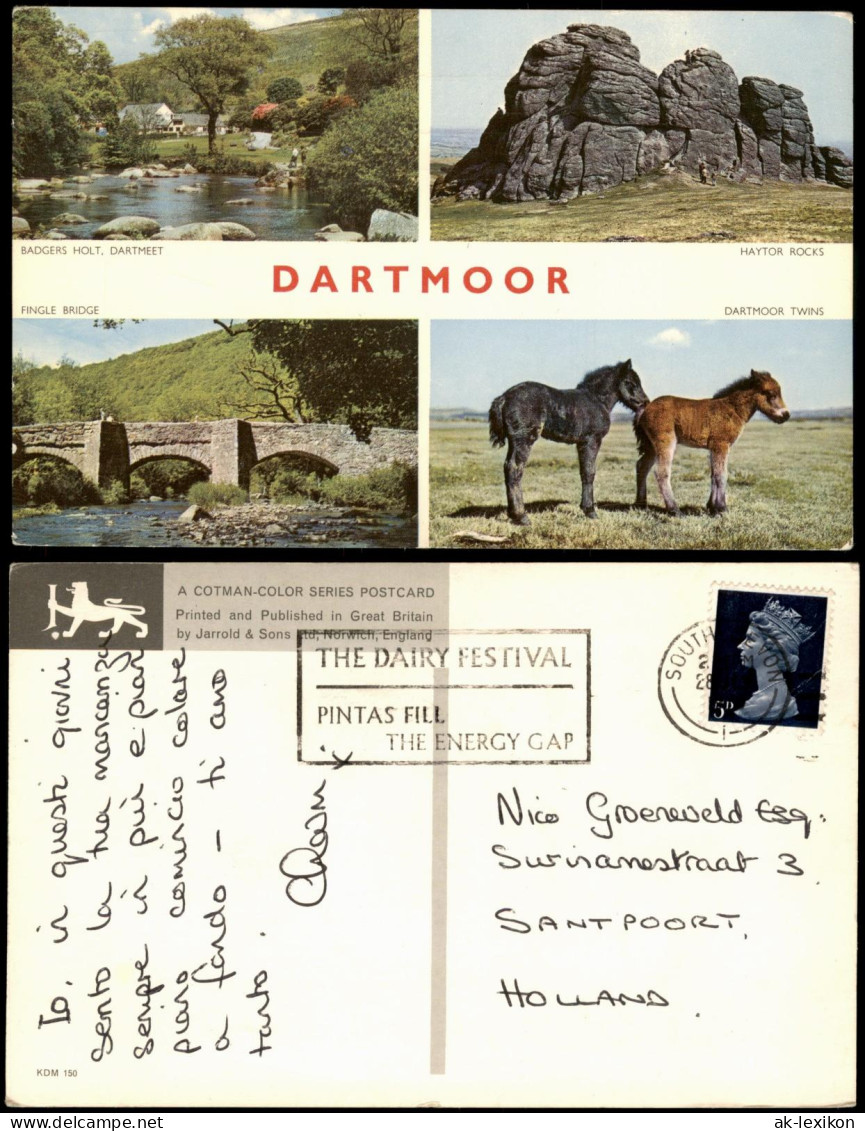 BADGERS HOLT, DARTMEET
HAYTOR ROCKS
DARTMOOR
FINGLE BRIDGE
DARTMOOR TWINS
A COTMAN-COLOR SERIES POSTCARD
Printed and Published in Great Britain
by Jarrold & Sons Ltd, Norwich, England
THE DAIRY FESTIVAL
PINTAS FILL
THE ENERGY GAP
SOUTH
28
5D
Io, in questi giorni
sento la tua mancanza
sempre in più e pian
piano comincio colare
a fondo - ti amo
tanto.
x
Nico Groeneveld Esq.
Surinamestraat 3
SANTPOORT,
HOLLAND.
KDM 150
ak-lexikon